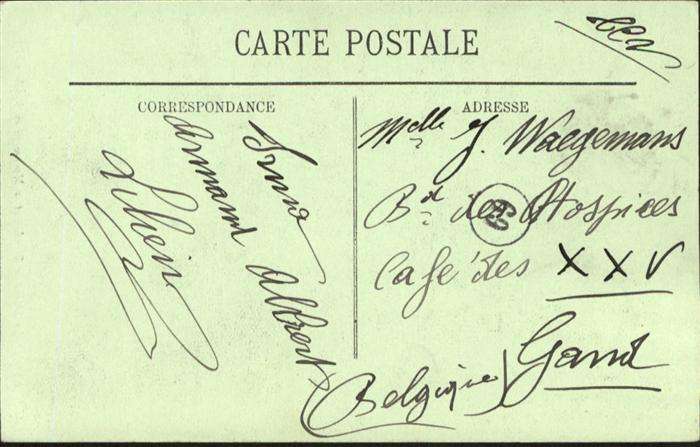 CARTE POSTALE
CORRESPONDANCE
Armand Albert
ADRESSE
Melle J. Waegemans
Bd des Hospices
Café des XXV
Gand
(Belgique)